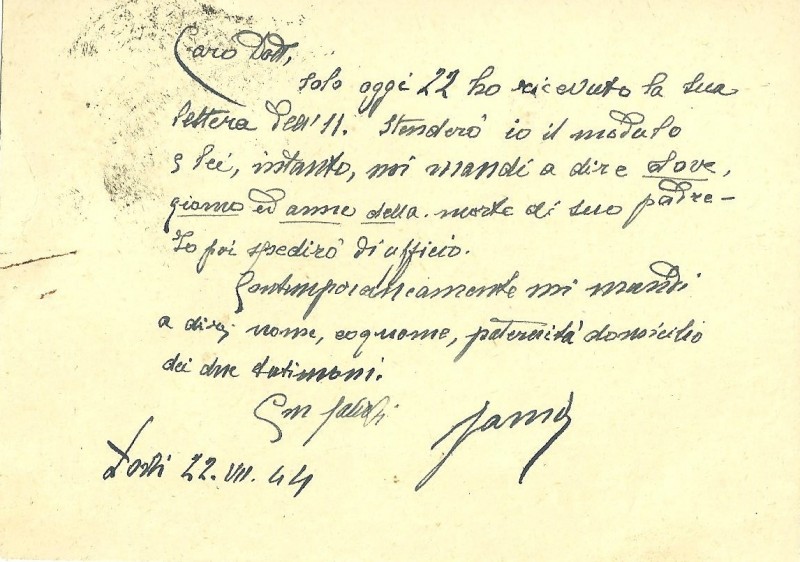 Caro Dott,
solo oggi 22 ho ricevuto la sua
lettera dell'11. Stenderò io il modulo
e lei, intanto, mi mandi a dire dove,
giorno ed anno della morte di suo padre-
Io poi spedirò di ufficio.
Contemporaneamente mi mandi
a dire, nome, cognome, paternità domicilio
dei due testimoni.
Con saluti
22.VII.44